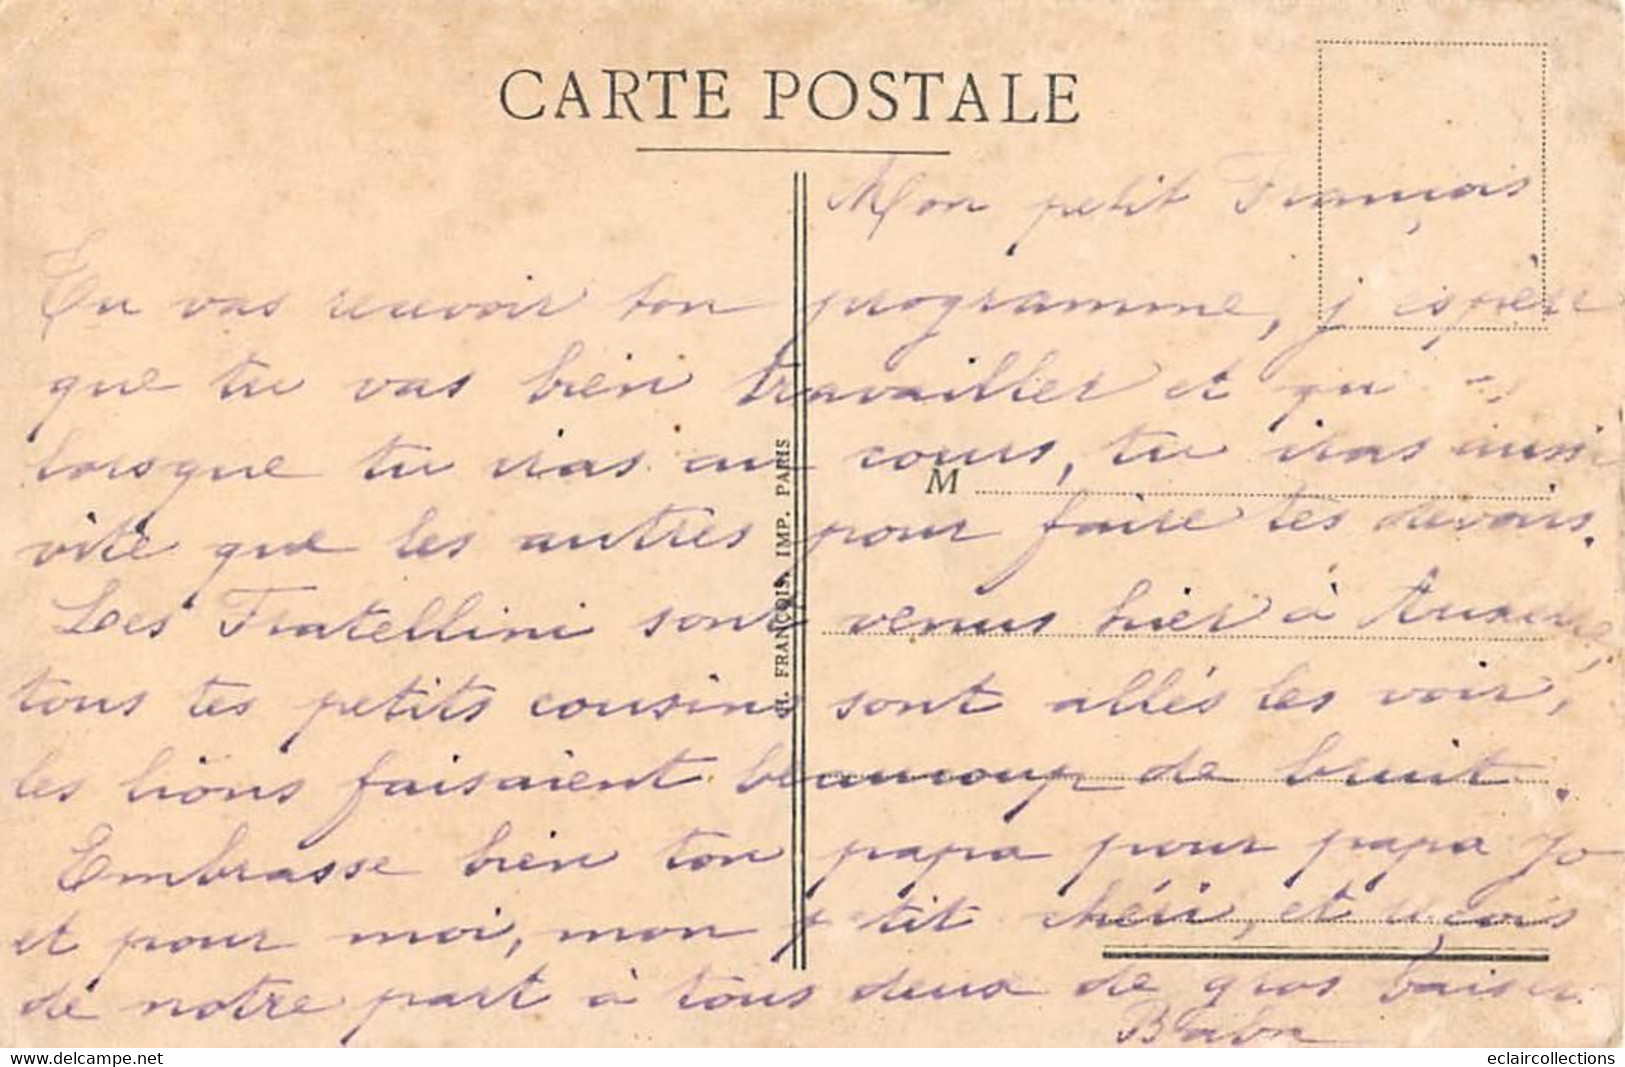 CARTE POSTALE
Mon petit François
Tu vas recevoir ton programme, j'espère
que tu vas bien travailler et qu
lorsque tu iras au cours, tu iras aussi
vite que les autres pour faire tes devoirs.
Les Fratellini sont venus hier à Auxerre,
tous tes petits cousins sont allés les voir,
les lions faisaient beaucoup de bruit.
Embrasse bien ton papa pour papa Jo
et pour moi, mon petit chéri, et reçois
de notre part à tous deux de gros baisers
M
H. FRANÇOIS, IMP. PARIS
https://www.delcampe.net
eclaircollections